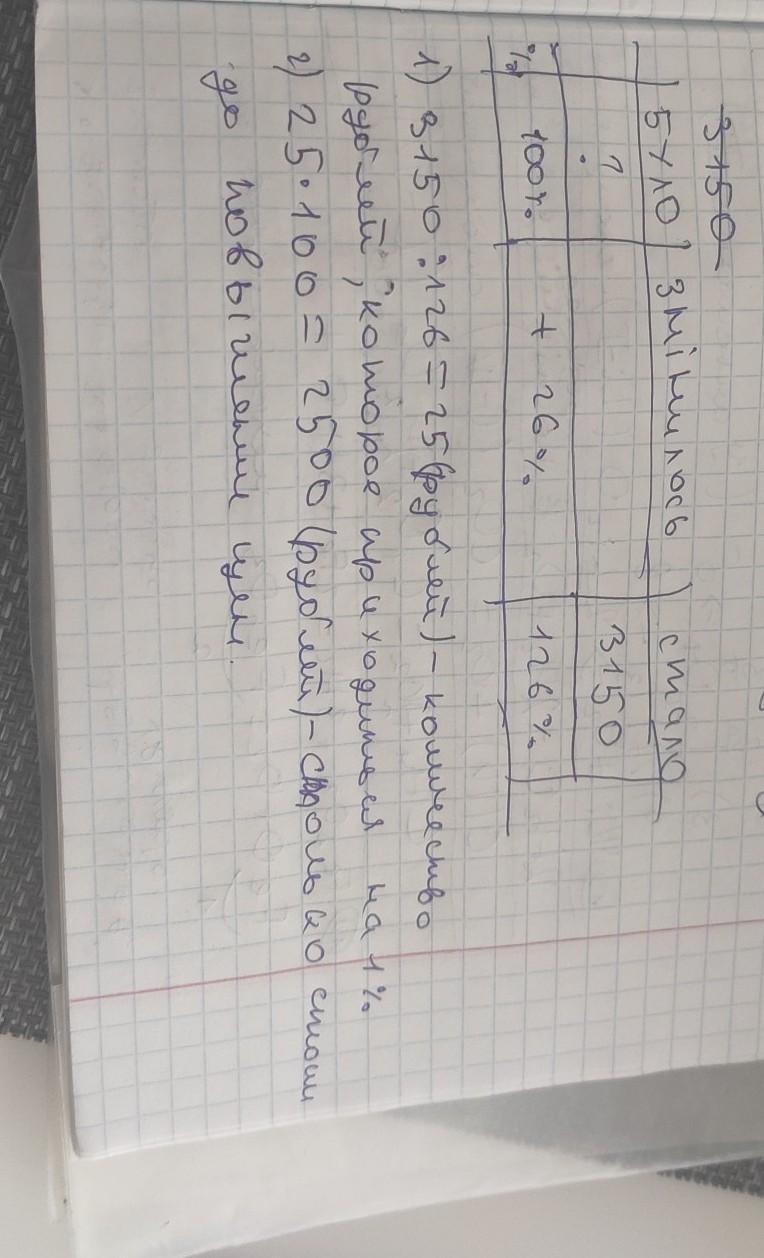 3150
было змінилось стало
? 3150
% 100% + 26% 126%
1) 3150 : 126 = 25 (рублей) - количество
рублей, которое приходиться на 1%
2) 25 · 100 = 2500 (рублей) - столько стоил
до повышения цен.